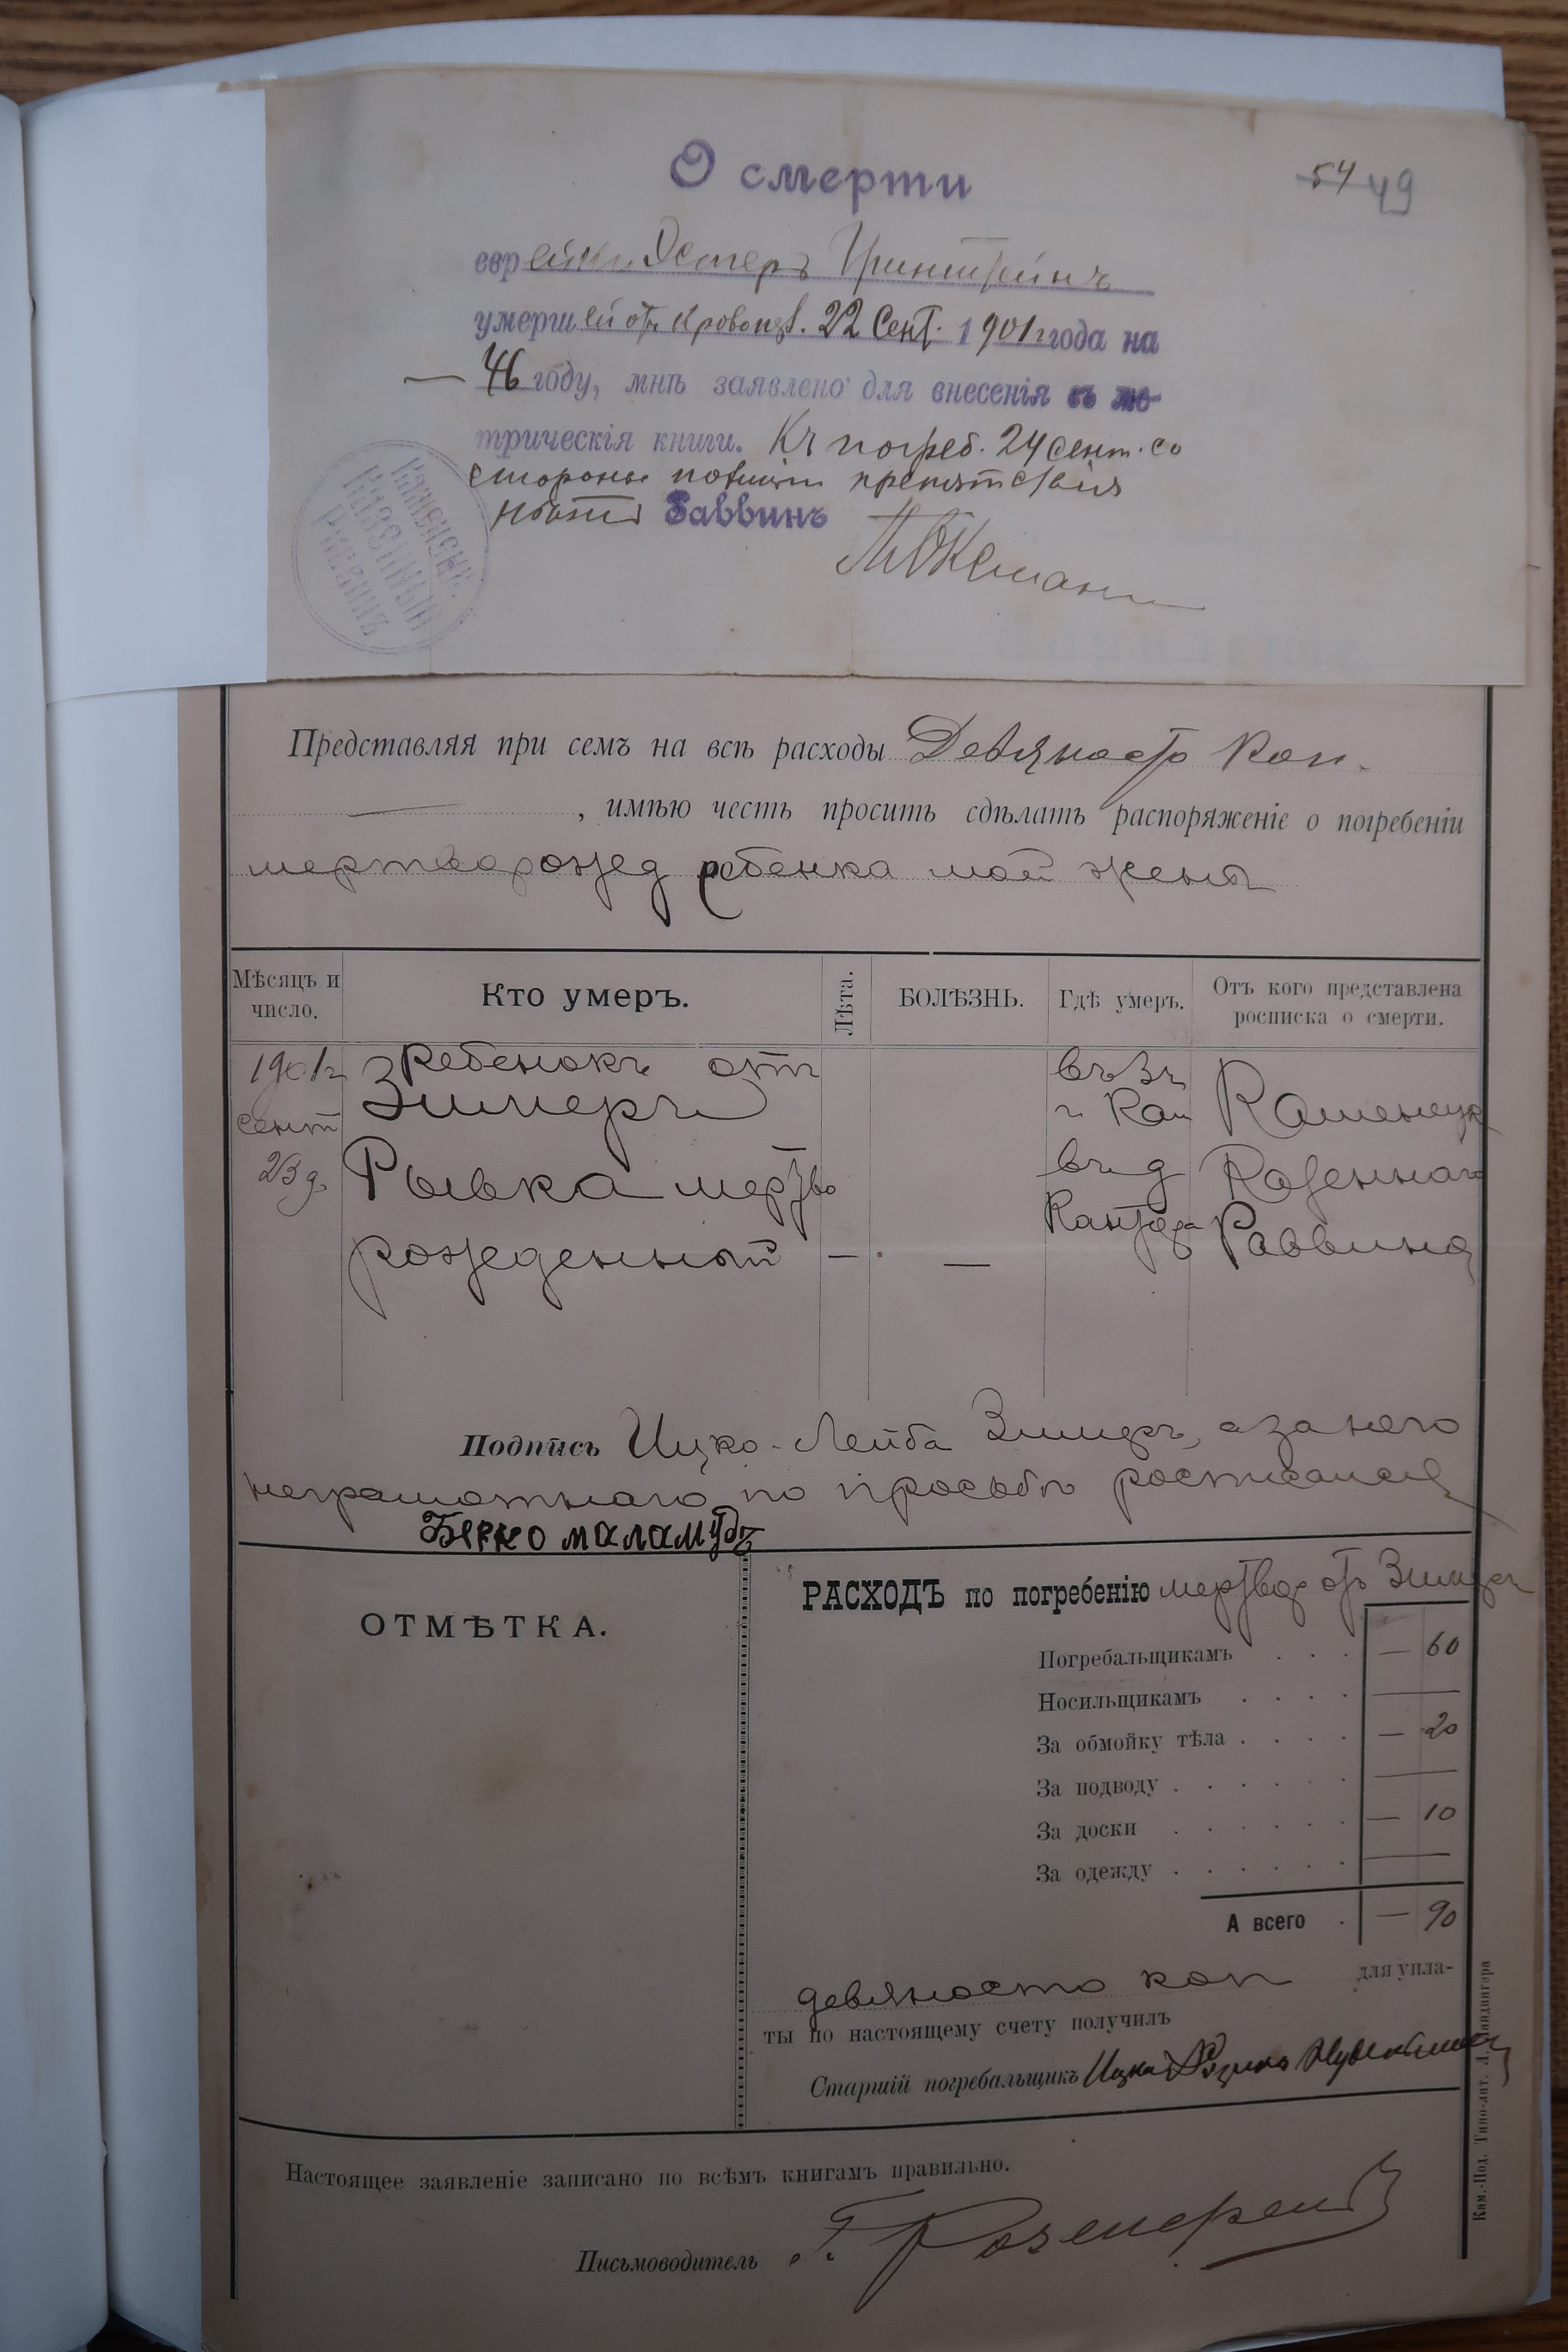 О смерти
54 49
еврейки Эстеръ Гринштейнъ
умершей отъ кровоизл. 22 Сент. 1901 г года на
— 46 году, мнѣ заявлено для внесенія въ ме-
трическія книги. Къ погреб. 24 сент. со
стороны полиціи препятствія
Раввинъ
Каменецк.
Казенный
Раввинъ
Представляя при семъ на всѣ расходы Девяносто коп.
, имѣю честь просить сдѣлать распоряженіе о погребеніи
мертворожед ребенка моей жены
Мѣсяцъ и число. Кто умеръ. Лѣта. БОЛѢЗНЬ. Гдѣ умеръ. Отъ кого представлена росписка о смерти.
1901 г Ребенокъ отъ
Зимеръ г Кам Каменецк
сент
23 д. Рывка мертво въ д Казеннаго
рожеденный — — Раввина
Подпись Ицко-Лейба Зимеръ, а за него
неграмотнаго по просьбѣ росписался
Берко маламудъ
ОТМѢТКА.
РАСХОДЪ по погребенію мертвор отъ Зимеръ
Погребальщикамъ . . . — 60
Носильщикамъ . . . . —
За обмойку тѣла . . . . — 20
За подводу . . . . . . —
За доски . . . . . . — 10
За одежду . . . . . . —
А всего . — 90
девяносто коп для упла-
ты по настоящему счету получилъ
Старшій погребальщикъ Ицка
Настоящее заявленіе записано по всѣмъ книгамъ правильно.
Письмоводитель
Кам.-Под. Типо-лит. Л. Ландвигера